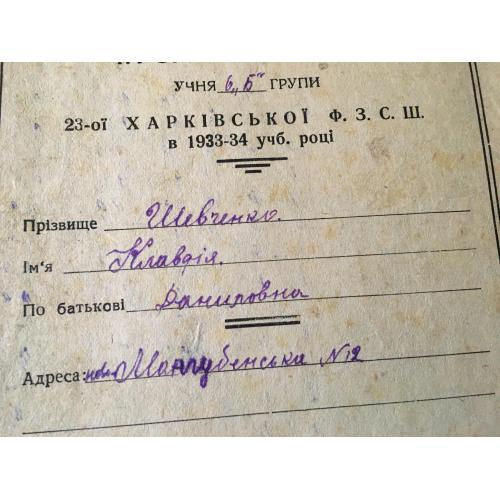 УЧНЯ 6 „Б" ГРУПИ
23-ої ХАРКІВСЬКОЇ Ф. З. С. Ш.
в 1933-34 учб. році
Прізвище Шевченко.
Ім'я Клавдія.
По батькові Даниловна
Адреса: №12